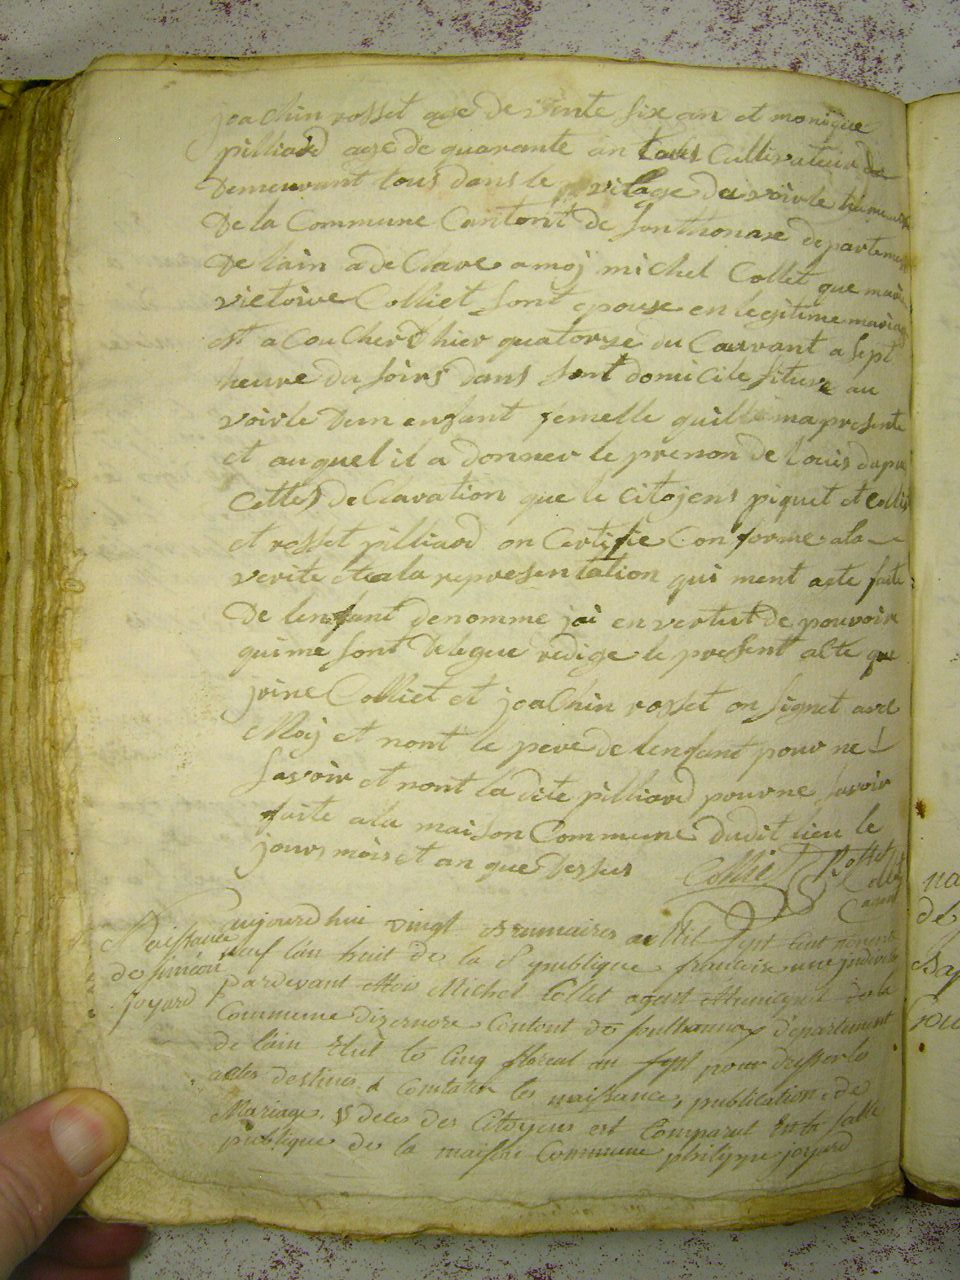 joachin rosset age de trente six an et monique
pilliard age de quarante an tous Cultivateur
Demeurant tous dans le vilage du voirle
De la Commune Cantont de Sonthonaxe departement
De lain a de Clare a moj michel Collet que marie
victoire Colliet sont epouse en legitime mariag
et a Coucher d hier quatorze du Courrant a sept
heure du soirs dans sont domicile situez au
voirle Dun enfant femelle quille ma presente
et auquel il a donner le prenon de louis dapre
Cettes de Claration que le citojens piquet et Collie
et rosset pilliard on Certifie Conforme ala
verite et a la representation qui ment a ete faite
De lenfant denomme jai en vertut de pouvoir
qui me sont Delegue redige le present alte que
Colliet et joachin rosset on signet avec
Moij et nont le pere de lenfant pour ne
savoir et nont la dite pilliard pour ne savoir
faite a la maison Commune dudit lieu le
jours mois et an que Dessus Colliet Rosset
Collet
agent
Naissance
de siméon
Joyard
aujourdhui vingt Brumaires
neuf lan huit de la Republique francoise une indivisible
pardevant Moi Michel Collet agent Municipal de la
Commune dizernore Contont de Sonthonnax Département
de lain Elut le Cinq floreal an sept pour dresser les
actes destines a Constater les naissances, publication de
Mariage, & deces des Citoyens est Comparut En la salle
publique de la maison Commune philippe joyard